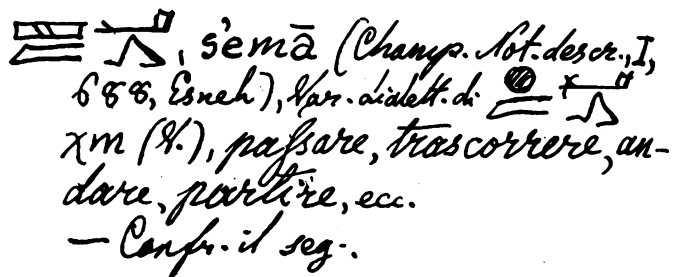 𓈙𓐝𓂻, śemā (Champ. Not. descr., I,
688, Esneh), Var. dialett. di 𓐍𓐝𓂻
χm (V.), passare, trascorrere, an-
dare, partire, ecc.
— Confr. il seg.